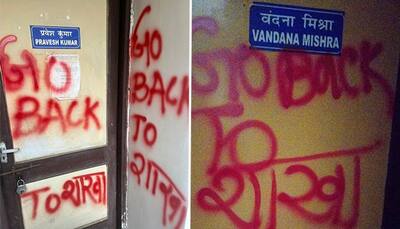 प्रवेश कुमार
PRAVESH KUMAR
GO
BACK
To शाखा
GO
BACK
TO
शाखा
वंदना मिश्रा
VANDANA MISHRA
GO BACK
To
शाखा